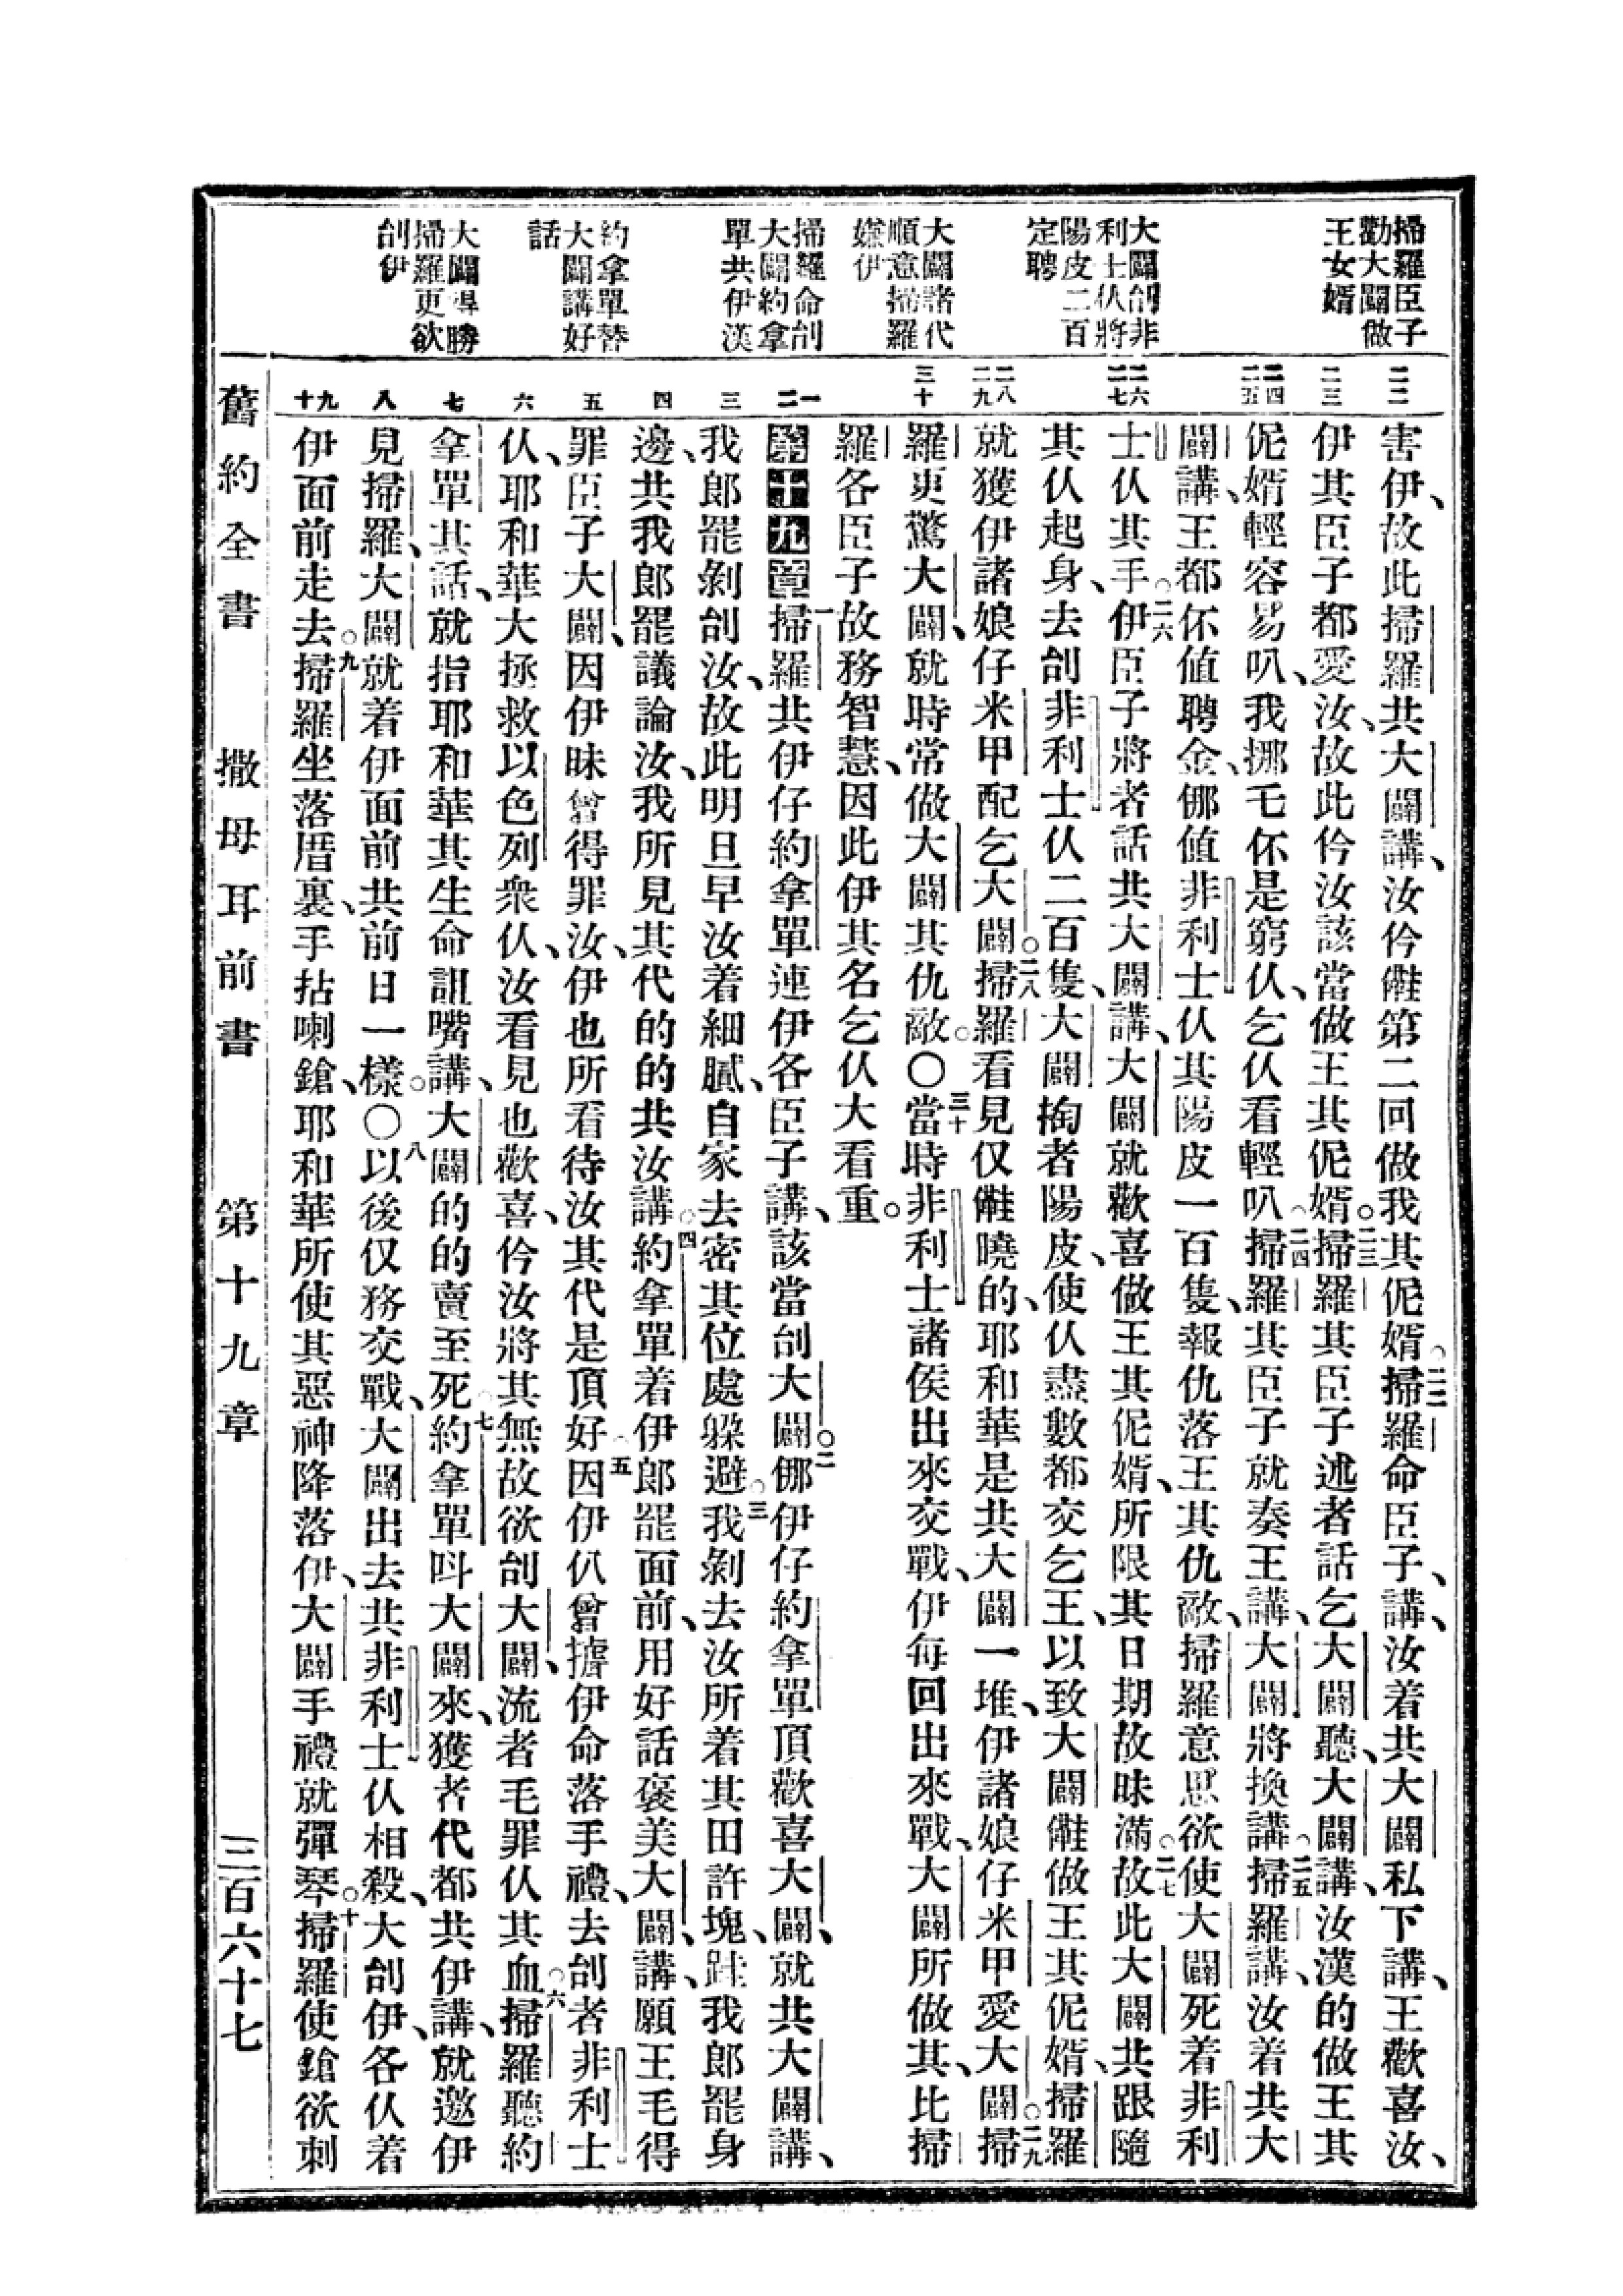 掃羅臣子
勸大闢做
王女婿
大闢刣非
利士仈將
陽皮二百
定聘
大闢諸代
順意掃羅
嫌伊
掃羅命刣
大闢約拿
單共伊漢
約拿單替
大闢講好
話
大闢得勝
掃羅更欲
刣伊
二二
二三
二四
二五
二六
二七
二八
二九
三十
一
二
三
四
五
六
七
八
九
十
害伊、故此掃羅共大闢講、汝伶第二回做我其伲婿○二二掃羅命臣子、講、汝着共大闢私下講、王歡喜汝、
伊其臣子都愛汝、故此伶汝該當做王其伲婿○二三掃羅其臣子述者話乞大闢聽、大闢講、汝漢的做王其
伲婿輕容易叭、我挪毛伓是窮仈、乞仈看輕叭○二四掃羅其臣子就奏王講、大闢將換講○二五掃羅講、汝着共大
闢講、王都伓值聘金、挪值非利士仈其陽皮一百隻、報仇落王其仇敵、掃羅意思欲使大闢死着非利
士仈其手○二六伊臣子將者話共大闢講、大闢就歡喜做王其伲婿、所限其日期故昧滿○二七故此大闢共跟隨
其仈起身、去刣非利士仈二百隻、大闢掏者陽皮、使仈盡數都交乞王、以致大闢做王其伲婿、掃羅
就獲伊諸娘仔米甲配乞大闢○二八掃羅看見仅曉的、耶和華是共大闢一堆、伊諸娘仔米甲愛大闢○二九掃
羅更驚大闢、就時常做大闢其仇敵○〇三十當時非利士諸侯出來交戰、伊每回出來戰、大闢所做其、比掃
羅各臣子故務智慧、因此伊其名乞仈大看重○
第十九章一掃羅共伊仔約拿單連伊各臣子講、該當刣大闢○二挪伊仔約拿單頂歡喜大闢、就共大闢講、
我郎罷剝刣汝、故此明旦早汝着細膩、自家去密其位處躲避○三我剝去汝所着其田許塊、跬我郎罷身
邊、共我郎罷議論汝、我所見其代的的共汝講○四約拿單着伊郎罷面前、用好話褒美大闢、講、願王毛得
罪臣子大闢、因伊昧曾得罪汝、伊也所看待汝其代是頂好○五因伊仈曾攎伊命落手禮、去刣者非利士
仈、耶和華大拯救以色列衆仈、汝看見也歡喜、伶汝將其無故欲刣大闢、流者毛罪仈其血○六掃羅聽約
拿單其話、就指耶和華其生命詛嘴講、大闢的的賣至死○七約拿單呌大闢來、獲者代都共伊講、就邀伊
見掃羅、大闢就着伊面前共前日一樣○〇八以後仅務交戰、大闢出去共非利士仈相殺、大刣伊、各仈着
伊面前走去○九掃羅坐落厝裏、手拈喇鎗、耶和華所使其惡神降落伊、大闢手禮就彈琴○十掃羅使鎗欲刺
舊約全書　撒母耳前書　第十九章　三百六十七